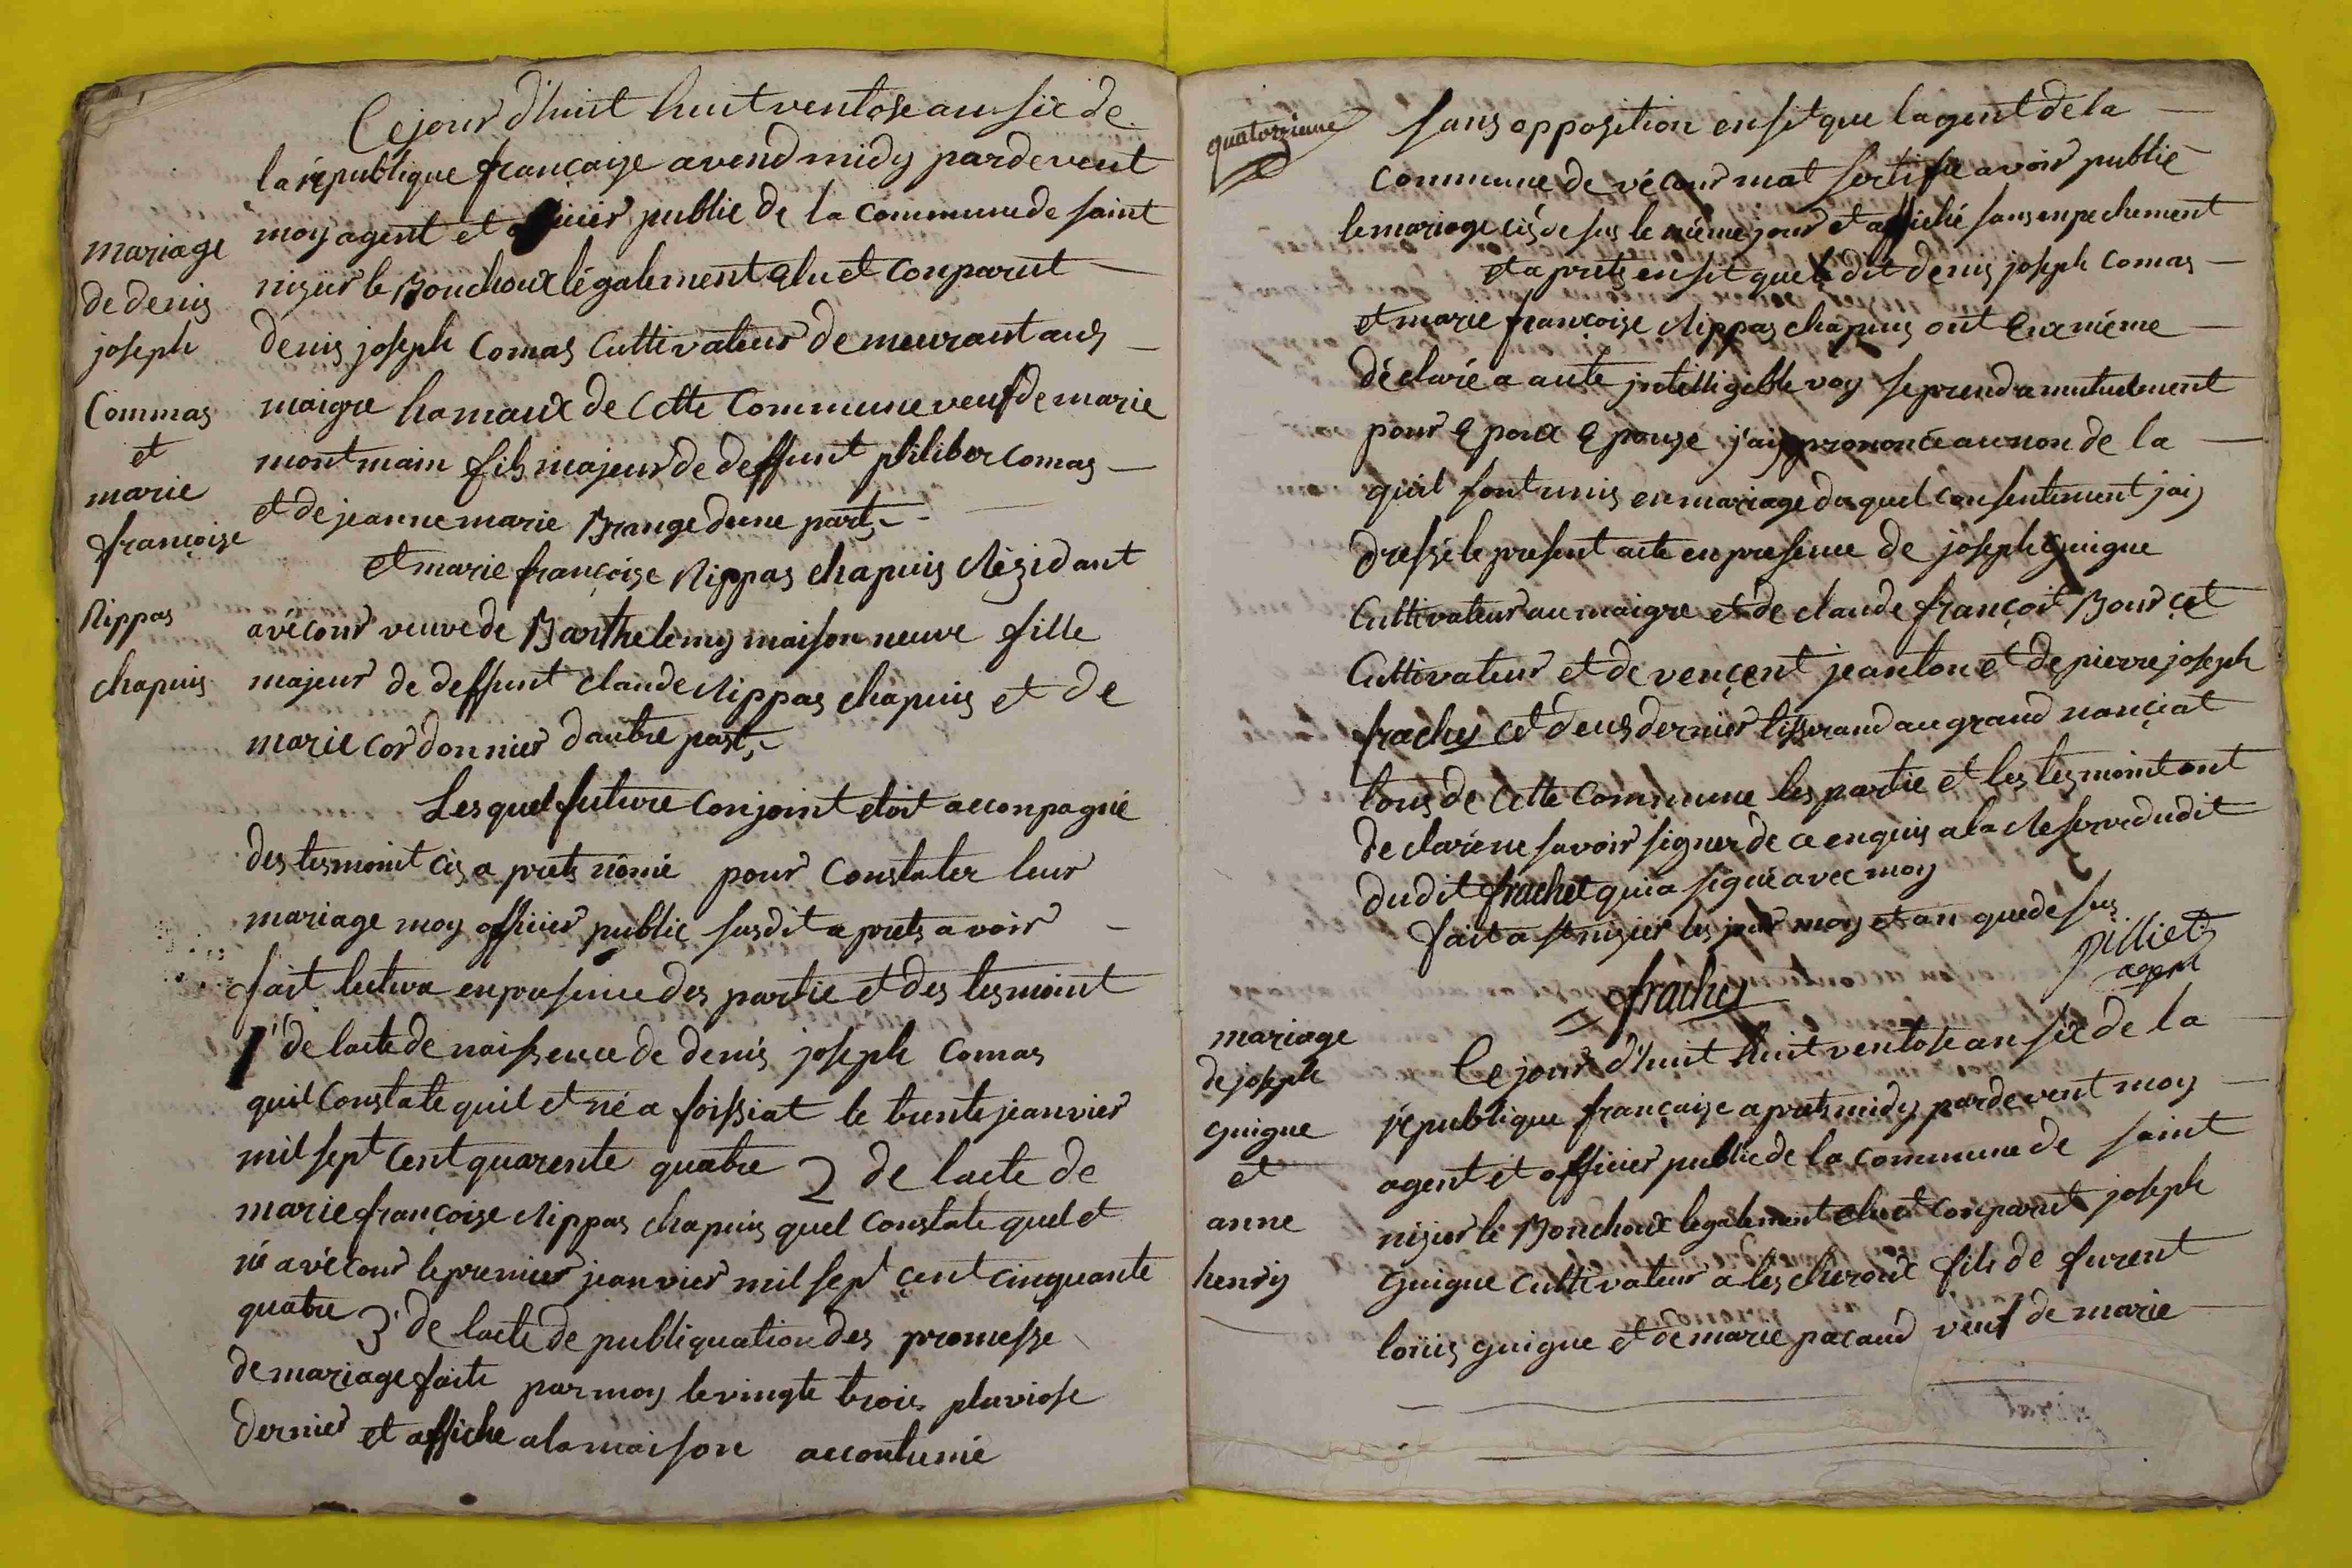 Ce jour d'huit huit ventose an six de
la république francaise avend midy pardevent
moy agent et officier public de la commune de saint
nizier le Bouchoux légalement elu et conparut
denis joseph comas cultivateur demeurant aus
maigre hamaux de cette commune veuf de marie
montmain fils majeur de deffunt philiber comas
et de jeanne marie Brange dune part,
mariage
de denis
joseph
Commas
et
marie
françoise
Rippas
chapuis
et marie françoise Rippas chapuis Rézidant
avécour veuve de Barthelemy maison neuve fille
majeur de deffunt claude Rippas chapuis et de
marie cordonnier dautre part,
Lesquel future conjoint etoit acconpagné
des tesmoint cis a prets nômé pour constater leur
mariage moy officier public susdit a prets avoir
fait lecture en presence des partie et des tesmoint
1 de lacte de naissence de denis joseph comas
quil constate quil et né a foissiat le trente jeanvier
mil sept cent quarente quatre 2 de lacte de
marie françoise Rippas chapuis quel constate quel et
né avécour le premier jeanvier mil sept çent cinquante
quatre 3 de lacte de publiquation des promesse
de mariage faite par moy le vingte trois pluviose
dernier et affiche a la maison accoutumé
quatorzieme
sans opposition ensit que lagent de la
commune de vécour mat sertifié avoir publié
le mariage cis de sus le même jour et affiché sans enpechement
et a prets ensit que le dit denis joseph comas
et marie françoise Rippas chapuis ont Eux même
déclaré a aute jntelligeble voy se prendre mutuelment
pour Epoux Epouze j'ai prononcé au non de la
quil sont unis en mariage duquel consentement jai
dressé le present acte en presence de joseph guigue
Cultivateur au maigre et de claude françoit Bourçet
Cultivateur et de vençent jeanton et de pierre joseph
frachet cet deus dernier tisserand au grand nançiat
tous de cette commune les partie et les tesmoint ont
declaré ne savoir signer de ce enquis a la Reserve dudit
dudit frachet qui a signé avec moy
fait a st nizier les jour moy et an que de sus
pilliet
agent
frachet
mariage
de joseph
guigue
et
anne
henry
Ce jour d'huit huit ventose an six de la
république française a prets midy pardevent moy
agent et officier public de la commune de saint
nizier le Bouchoux legalement elu et conparut joseph
guigue cultivateur a les cheroux fils de furent
loüis guigue et de marie pacaud veuf de marie